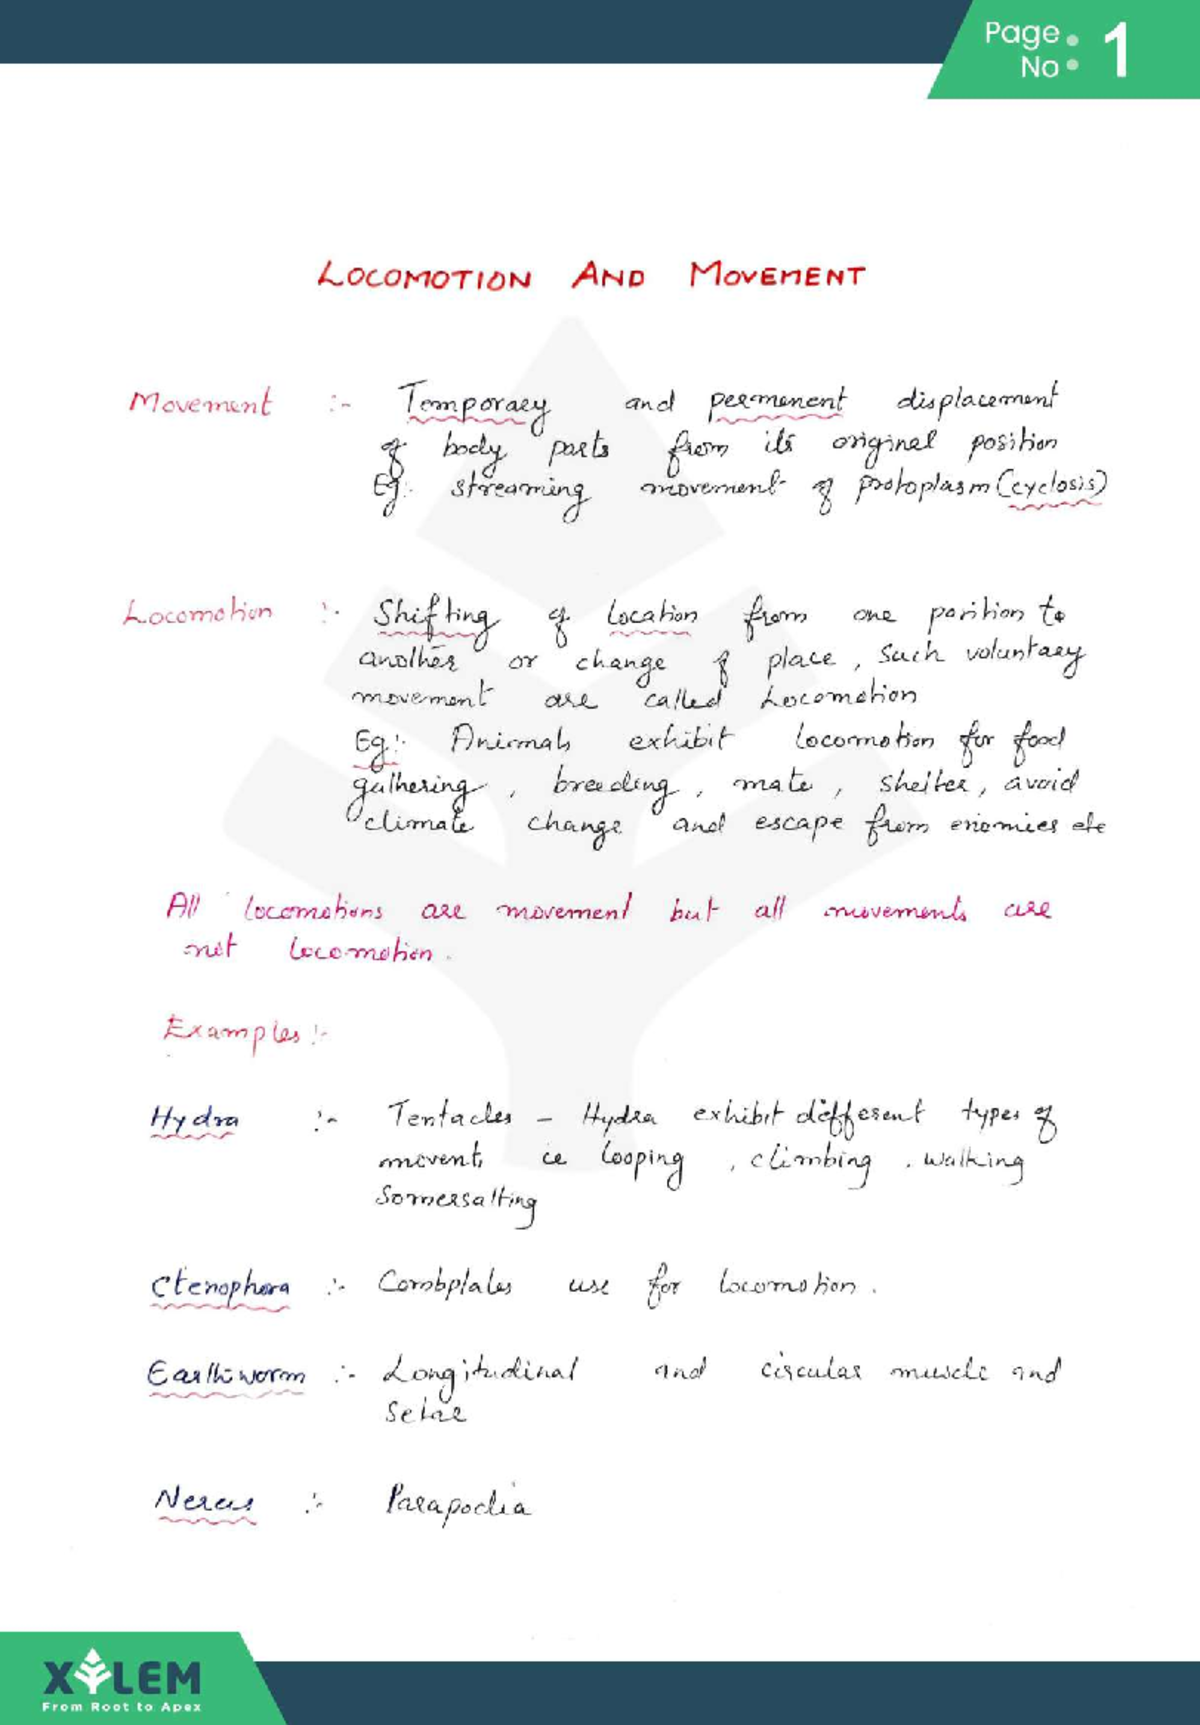 Page No : 1
LOCOMOTION AND MOVEMENT
Movement :- Temporary and permenent displacement
of body parts from its original position
Eg:- streaming movement of protoplasm (cyclosis)
Locomotion :- Shifting of location from one position to
another or change of place, such voluntary
movement are called Locomotion
Eg:- Animals exhibit locomotion for food
gathering, breeding, mate, shelter, avoid
climate change and escape from enemies etc
All locomotions are movement but all movements are
not locomotion.
Examples :-
Hydra :- Tentacles – Hydra exhibit different types of
movent, ie looping, climbing, walking
Somersalting
Ctenophora :- Combplates use for locomotion.
Earthworm :- Longitudinal and circular muscle and
Setae
Nereis :- Parapodia
XYLEM
From Root to Apex